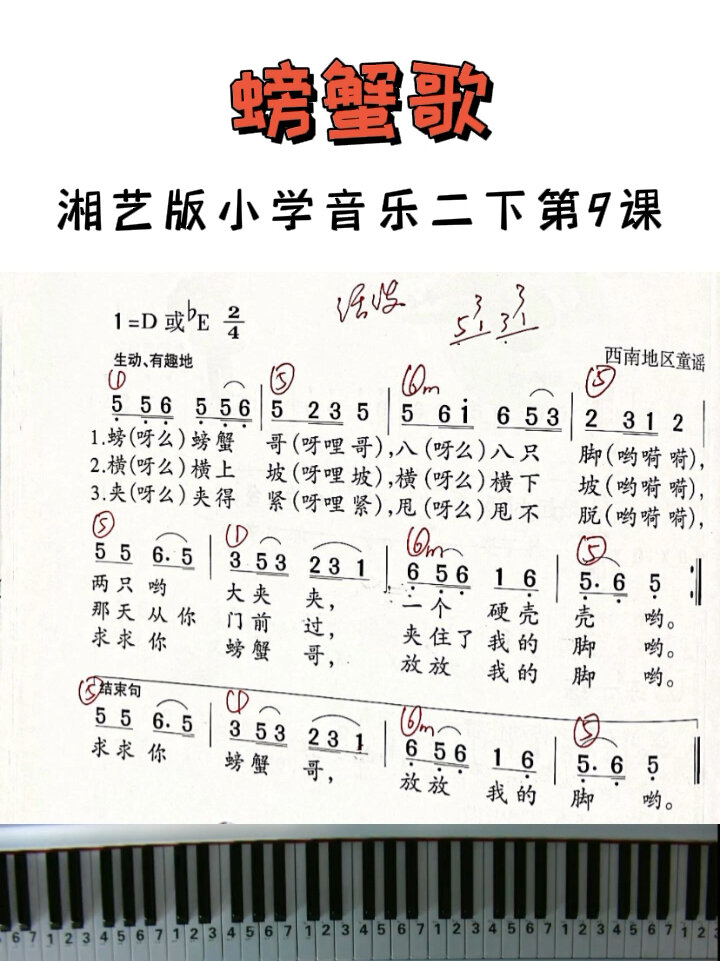 螃蟹歌
湘艺版小学音乐二下第9课
1=D 或 ♭E 2/4
活泼
5 3 1 3 3 1
生动、有趣地
西南地区童谣
① ⑤ ⑥m ⑤
5̣ 5̣ 6̣ 5̣ 5̣ 6̣ | 5 2 3 5 | 5 6 i 6 5 3 | 2 3 1 2 |
1.螃(呀么)螃蟹 哥(呀哩哥),八(呀么)八只 脚(哟嗬嗬),
2.横(呀么)横上 坡(呀哩坡),横(呀么)横下 坡(哟嗬嗬),
3.夹(呀么)夹得 紧(呀哩紧),甩(呀么)甩不 脱(哟嗬嗬),
⑤ ① ⑥m ⑤
5 5 6. 5 | 3 5 3 2 3 1 | 6̣ 5̣ 6̣ 1 6̣ | 5̣. 6̣ 5̣ :‖
两只哟 大夹夹, 一个硬壳壳哟。
那天从你门前过, 夹住了我的脚哟。
求求你 螃蟹哥, 放放我的脚哟。
⑤ ① ⑥m ⑤
结束句
5 5 6. 5 | 3 5 3 2 3 1 | 6̣ 5̣ 6̣ 1 6̣ | 5̣. 6̣ 5̣ ‖
求求你 螃蟹哥, 放放我的脚哟。
6 7 1 2 3 4 5 6 7 1 2 3 4 5 6 7 1 2 3 4 5 6 7 1 2 3 4 5 6 7 1 2 3